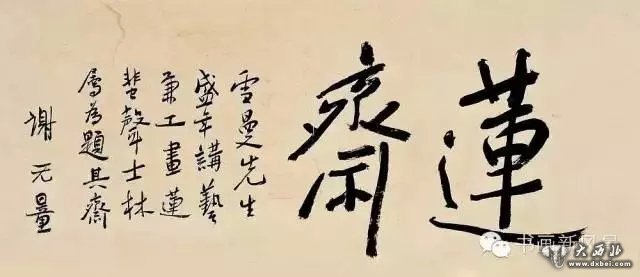 蓮齋
雪曼先生
盛年講藝
兼工畫蓮
蜚聲士林
屬為題其齋
謝无量
书画新风景
大西北
www.dxbei.com